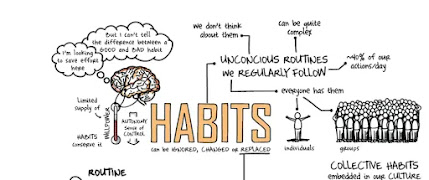 we don't think
about them
can be quite
complex
But I can't tell
the difference between a
GOOD and BAD habit
I'm looking
to save effort
here
UNCONCIOUS ROUTINES
WE REGULARLY FOLLOW
~40% of our
actions/day
everyone has them
Limited
supply of
WILLPOWER
HABITS
conserve it
AUTONOMY
Sense of
CONTROL
HABITS
can be IGNORED, CHANGED or REPLACED
individuals
groups
ROUTINE
COLLECTIVE HABITS
embedded in our CULTURE